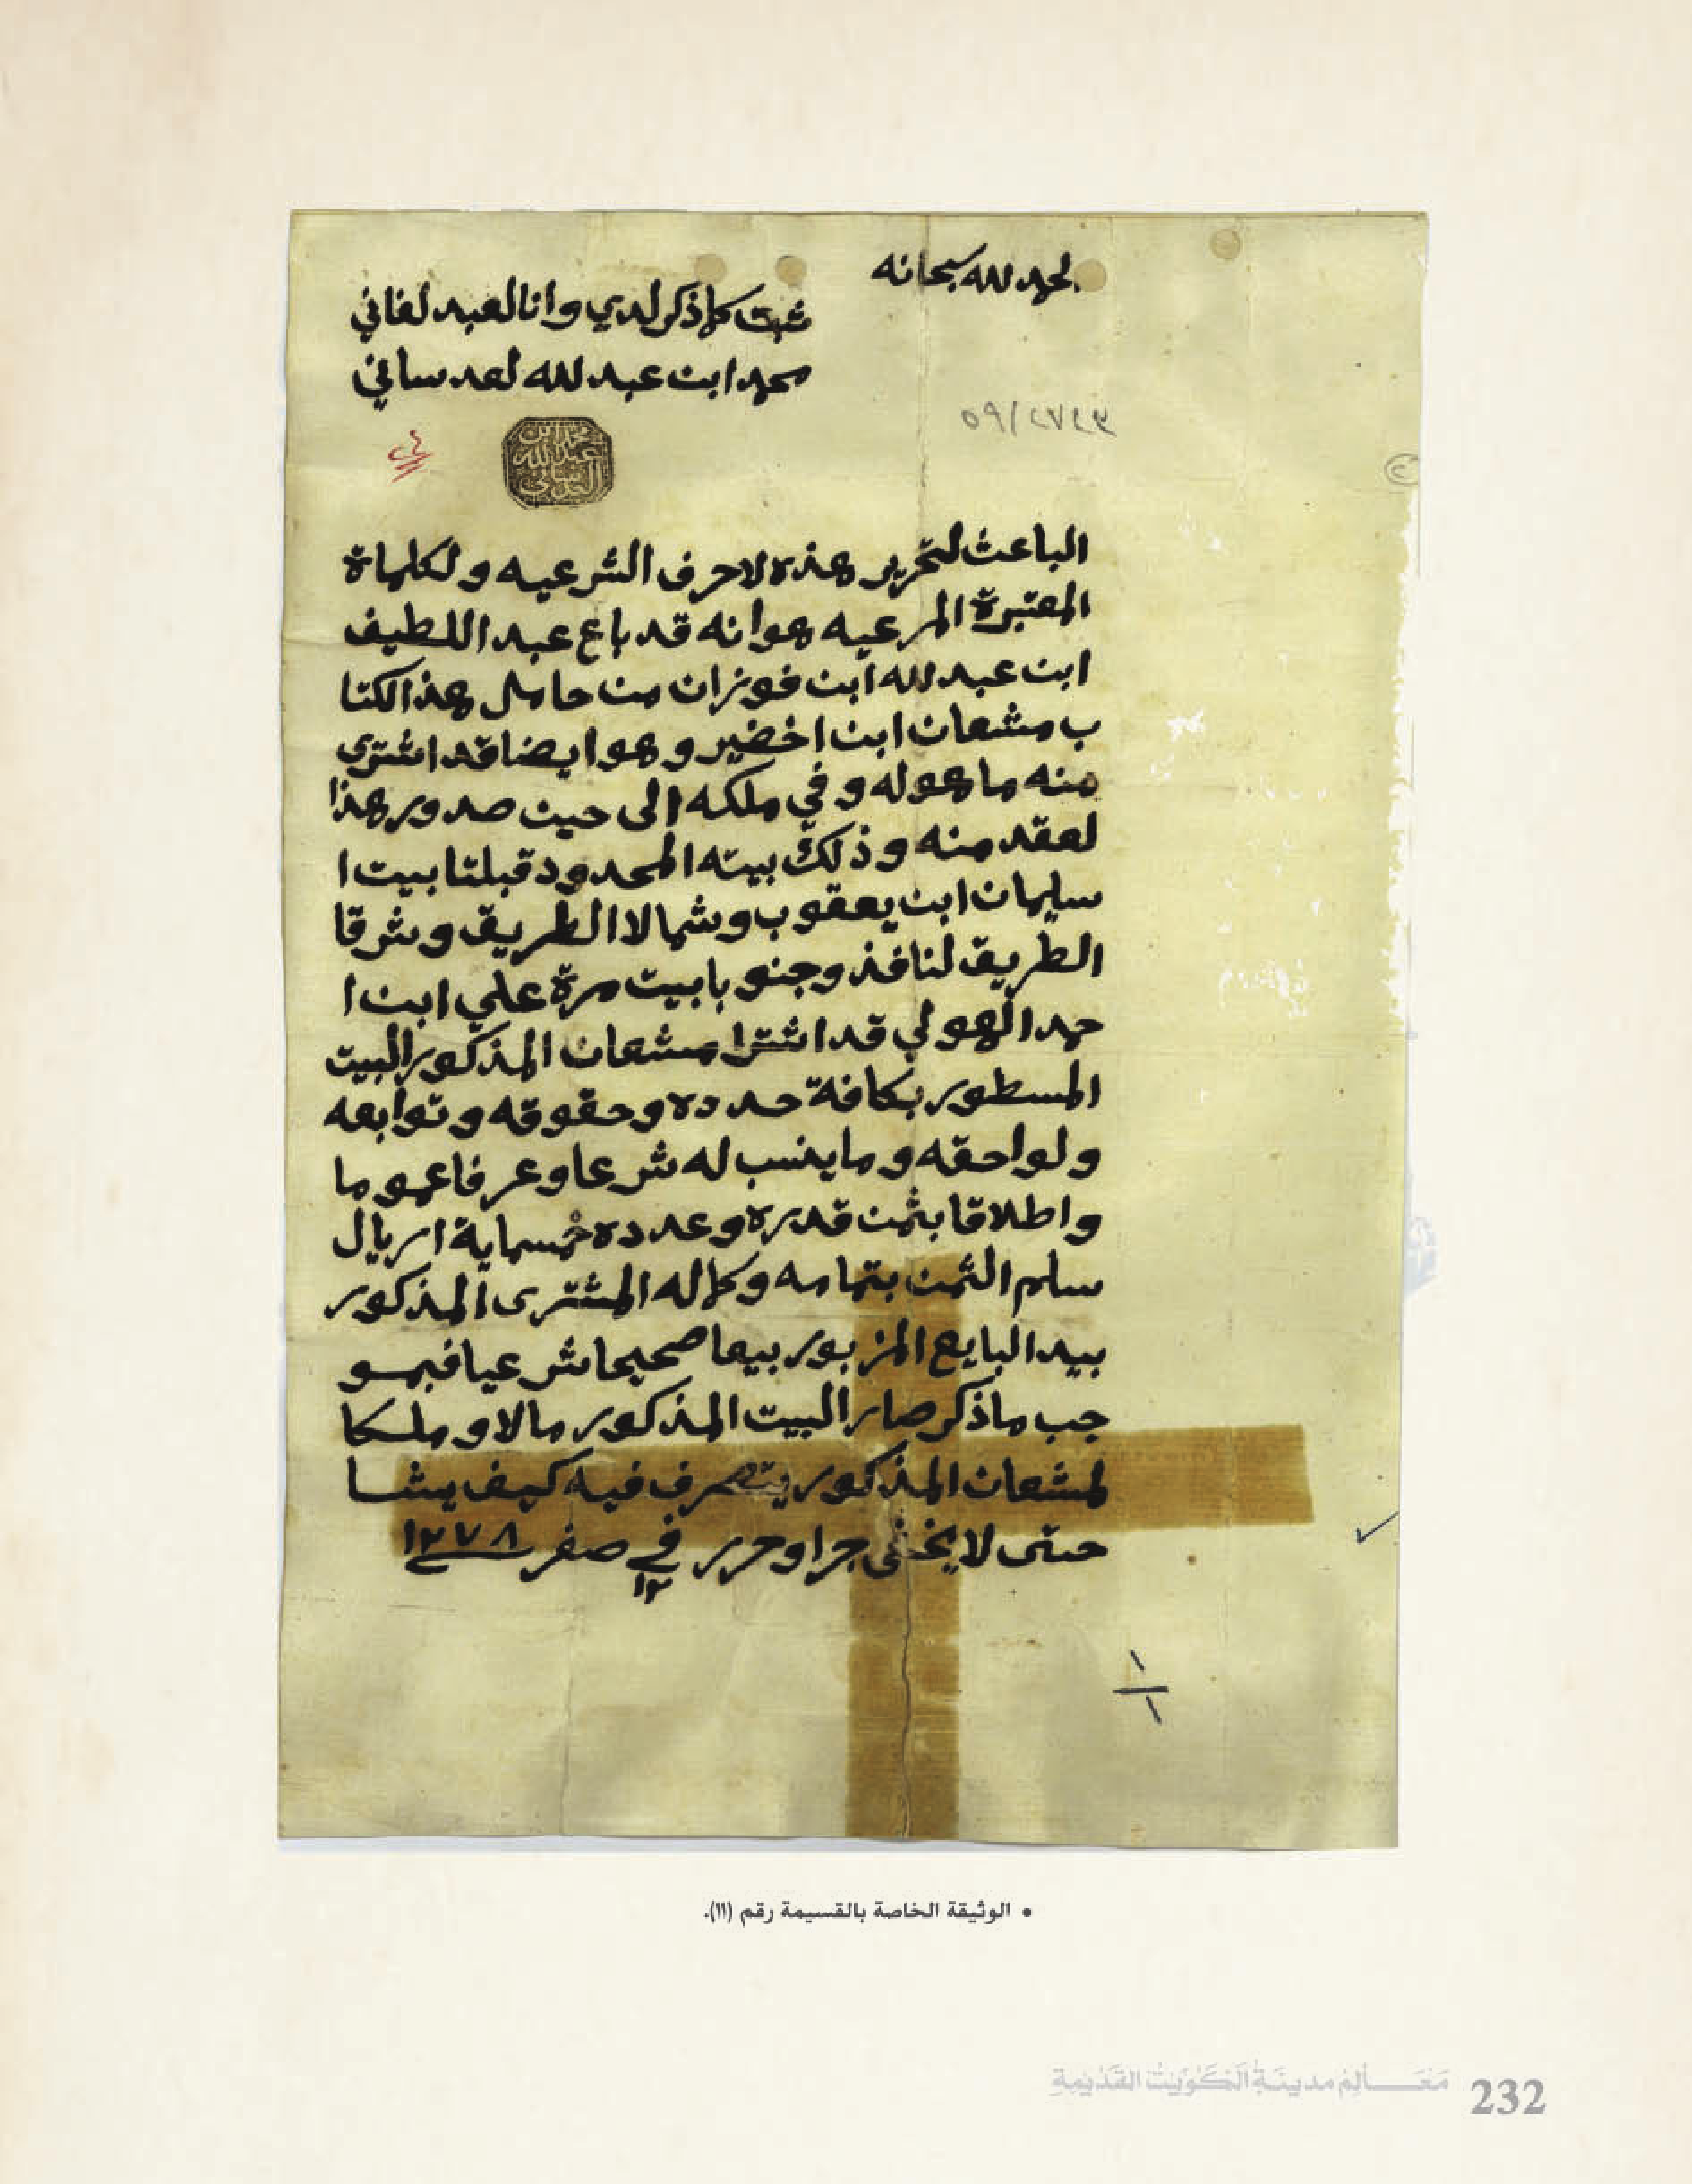 لحمد لله سبحانه
ثبت كلما ذكر لدي وانا لعبد لفاني
محمد ابن عبد لله لعدساني
محمد ابن
عبد الله
العدساني
٥٩/٢٧٤٣
الباعث لتحرير هذه لاحرف الشرعيه ولكلماة
المعتبرة المرعيه هوانه قد باع عبد اللطيف
ابن عبد لله ابن فوزان من حامل هذ الكتا
ب مشعان ابن اخضير وهو ايضا قد اشترى
منه ما هو له وفي ملكه الى حين صدور هذا
لعقد منه وذلك بيته المحدود قبلتا بيت ا
سليمان ابن يعقوب وشمالا الطريق وشرقا
الطريق لنافذ وجنوبا بيت مرة علي ابن ا
حمد الهولي قد اشترا مشعان المذكور البيت
المسطور بكافة حدده وحقوقه وتوابعه
ولواحقه وما ينسب له شرعا وعرفا عموما
واطلاقا بثمن قدره وعدده خمسماية اريال
سلم الثمن بتمامه وكماله المشترى المذكور
بيد البايع المزبور بيعا صحيحا شرعيا فبمو
جب ما ذكر صار البيت المذكور مالا وملكا
لمشعان المذكور يتصرف فيه كيف يشا
حتى لا يخفى جرا وحرر في ١٢ صفر ١٢٧٨
١
١
• الوثيقة الخاصة بالقسيمة رقم (١١).
مَعَالِمُ مدينَةِ الكُوَيْتِ القَدْيمَةِ 232